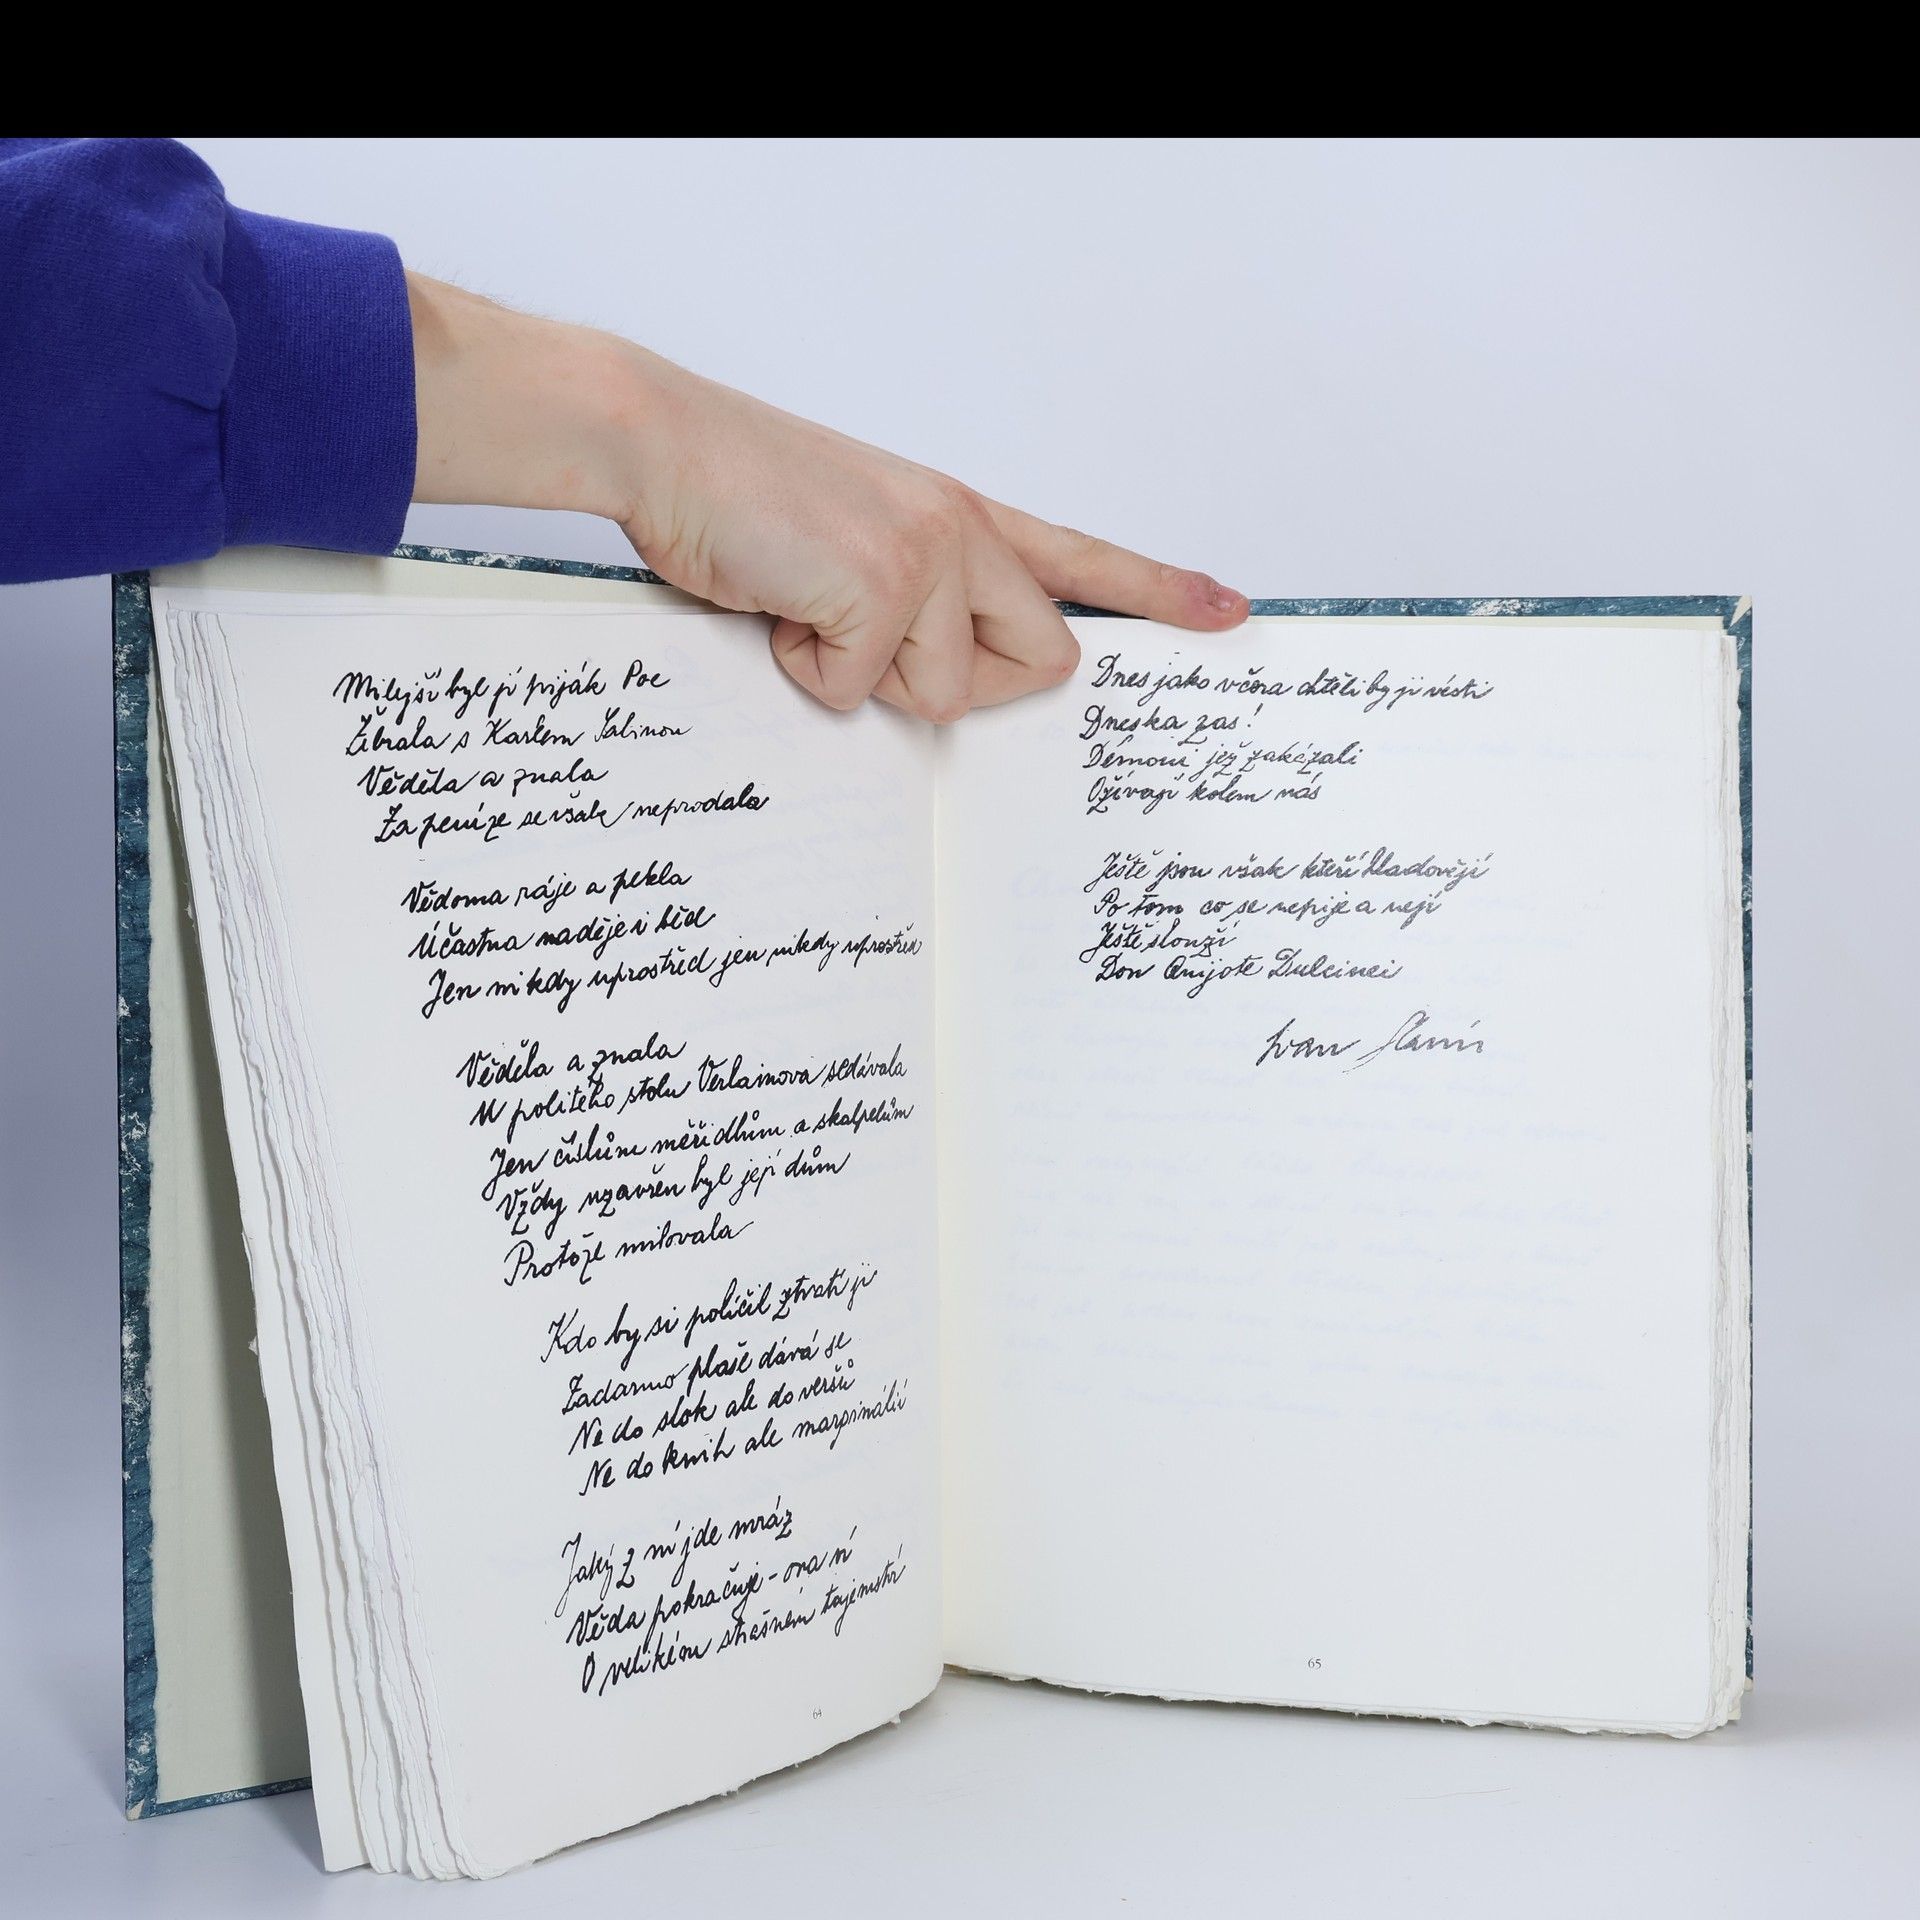 Milejší byl jí piják Poe
Žebrala s Karlem Sabinou
Věděla a znala
Za peníze se však neprodala
Vědoma ráje a pekla
Účastna naděje i běd
Jen nikdy uprostřed jen nikdy uprostřed
Věděla a znala
U politého stolu Verlainova sedávala
Jen číslům měřidlům a skalpelům
Vždy uzavřen byl její dům
Protože milovala
Kdo by si políčil ztratí ji
Zadarmo plaše dává se
Ne do slok ale do veršů
Ne do knih ale marginálií
Jaký z ní jde mráz
Věda pokračuje - ona ví
O velikém strašném tajemství
64
Dnes jako včera chtěli by ji vésti
Dneska zas!
Démoni jež zakázali
Ožívají kolem nás
Ještě jsou však kteří hladovějí
Po tom co se nepije a nejí
Ještě slouží
Don Quijote Dulcinei
Ivan Slavík
65